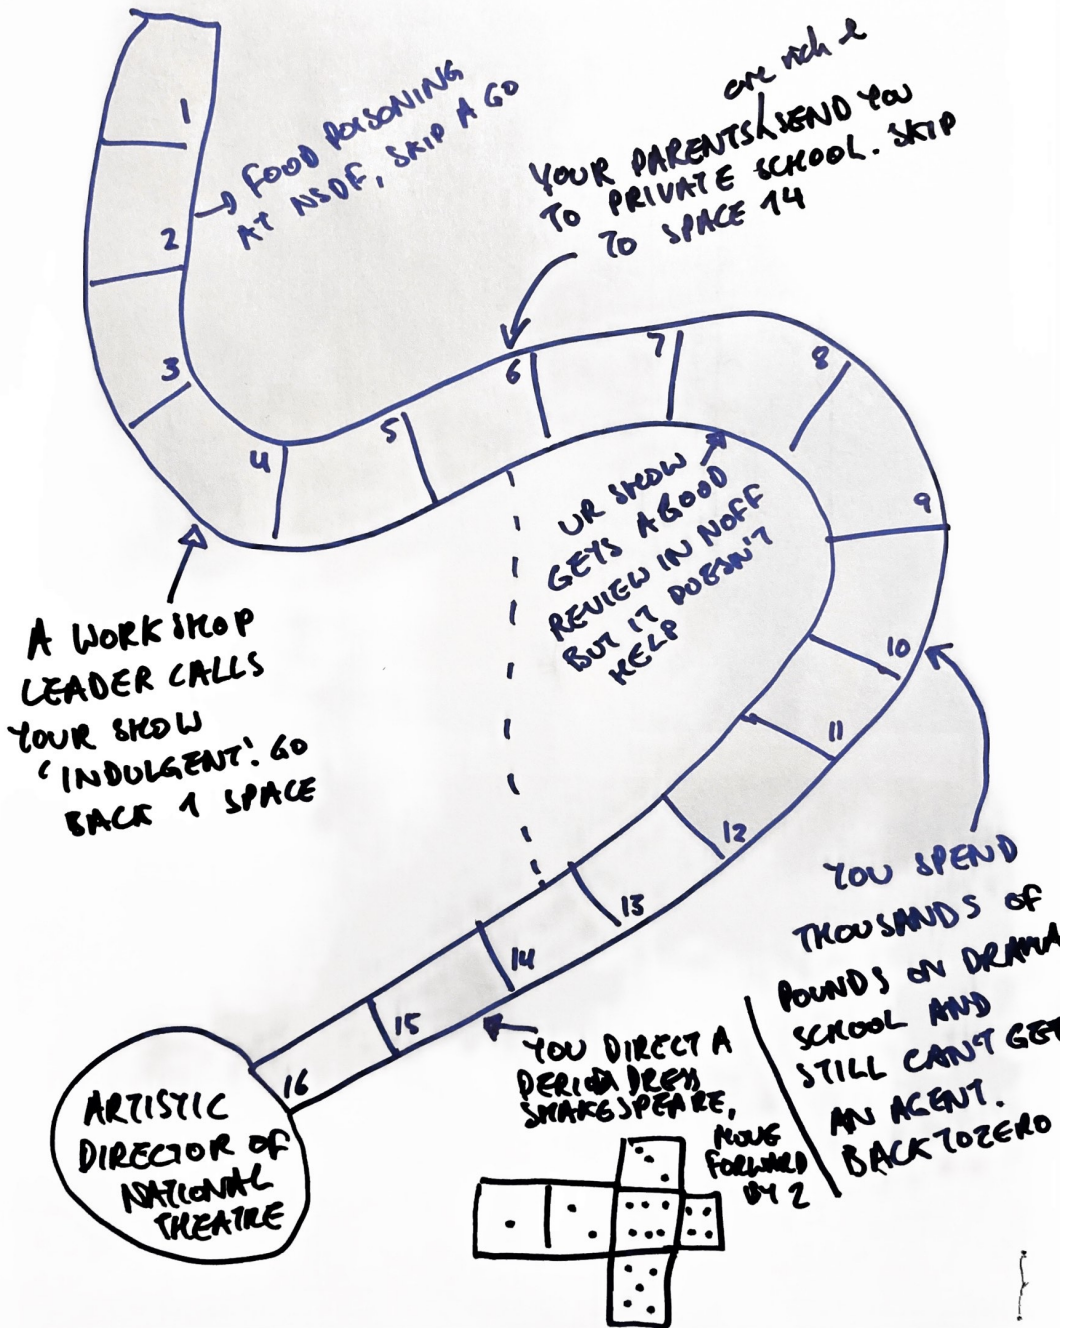 1
→ FOOD POISONING
AT NSDF, SKIP A GO
are rich &
YOUR PARENTS SEND YOU
TO PRIVATE SCHOOL. SKIP
TO SPACE 14
2
3
4
5
6
7
8
9
10
11
12
13
14
15
16
UR SHOW
GETS A GOOD
REVIEW IN NOFF
BUT IT DOESN'T
HELP
A WORKSHOP
LEADER CALLS
YOUR SHOW
'INDULGENT'. GO
BACK 1 SPACE
YOU SPEND
THOUSANDS OF
POUNDS ON DRAMA
SCHOOL AND
STILL CAN'T GET
AN AGENT.
BACK TO ZERO
YOU DIRECT A
PERIOD DRESS
SHAKESPEARE,
MOVE
FORWARD
BY 2
ARTISTIC
DIRECTOR OF
NATIONAL
THEATRE